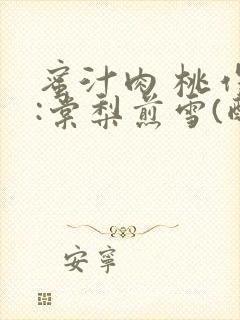 蜜汁肉桃作
:棠梨煎雪(
安寧